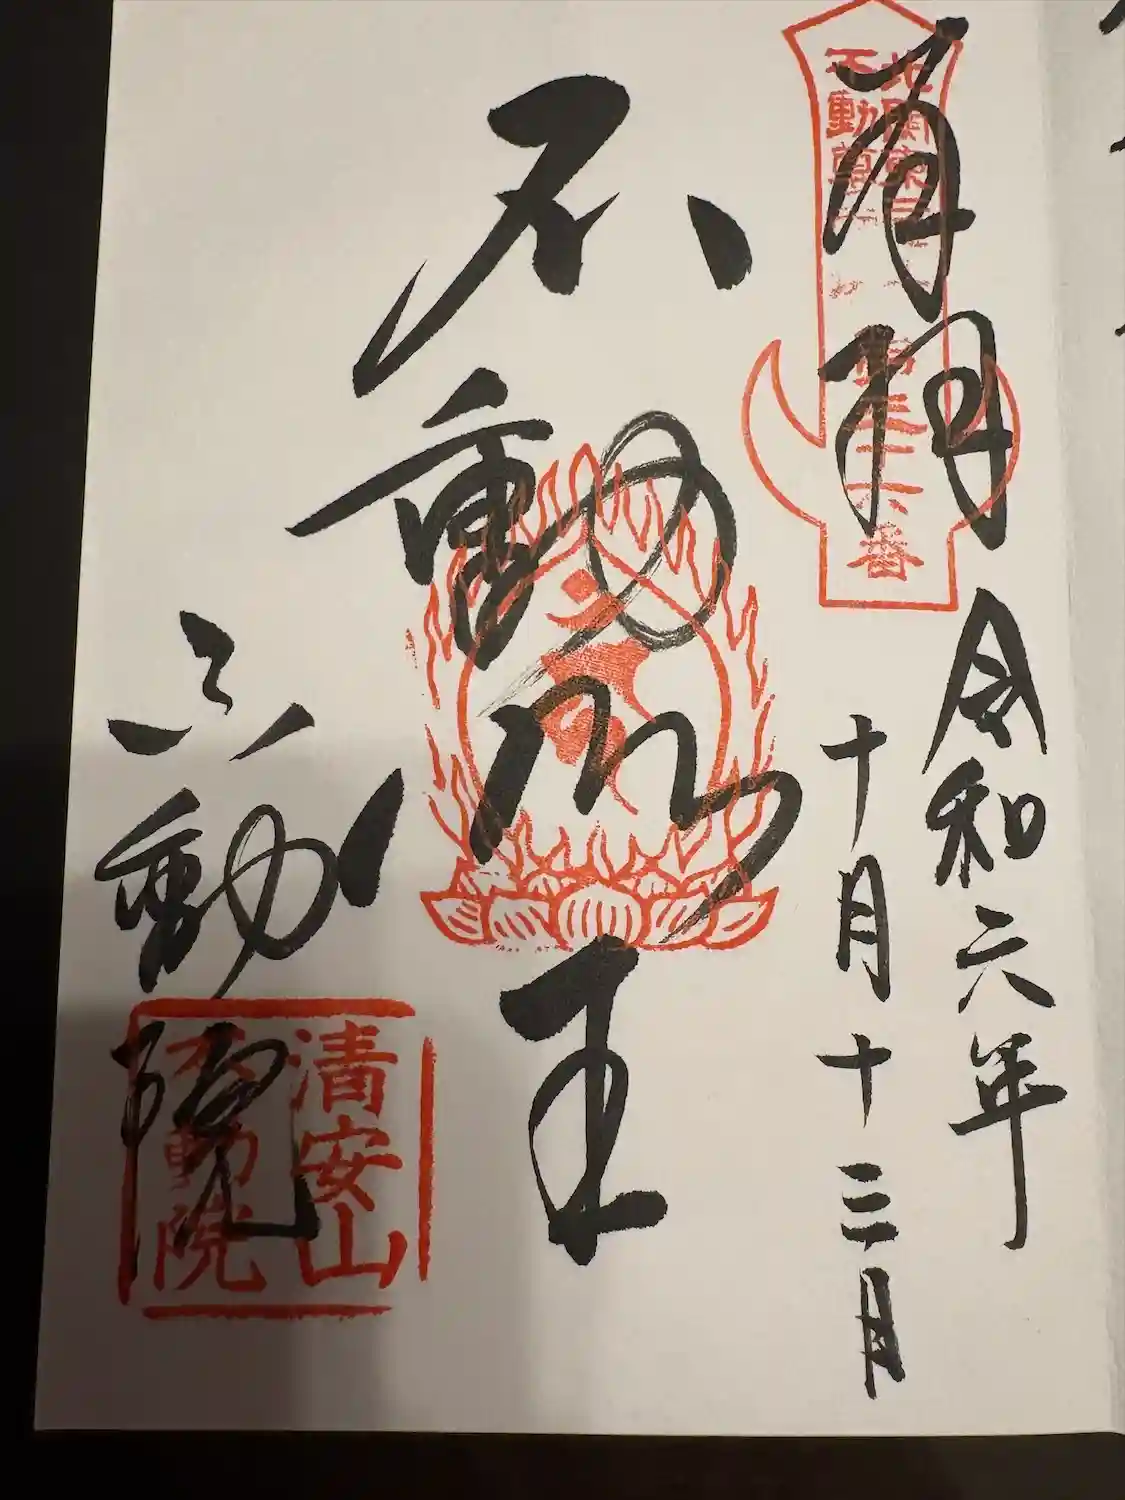 奉拝
北関東三十六
不動尊
第三十六番
令和六年
十月十三日
不動明王
不動院
清安山
不動院